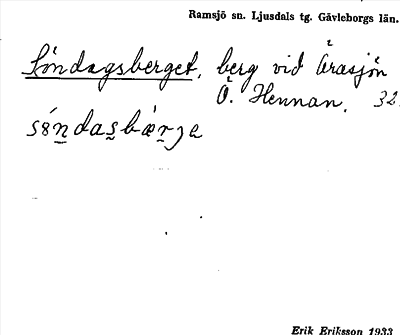 Ramsjö sn. Ljusdals tg. Gävleborgs län.
Söndagsberget, berg vid Årasjön
Ö. Hennan. 32.
Erik Eriksson 1933